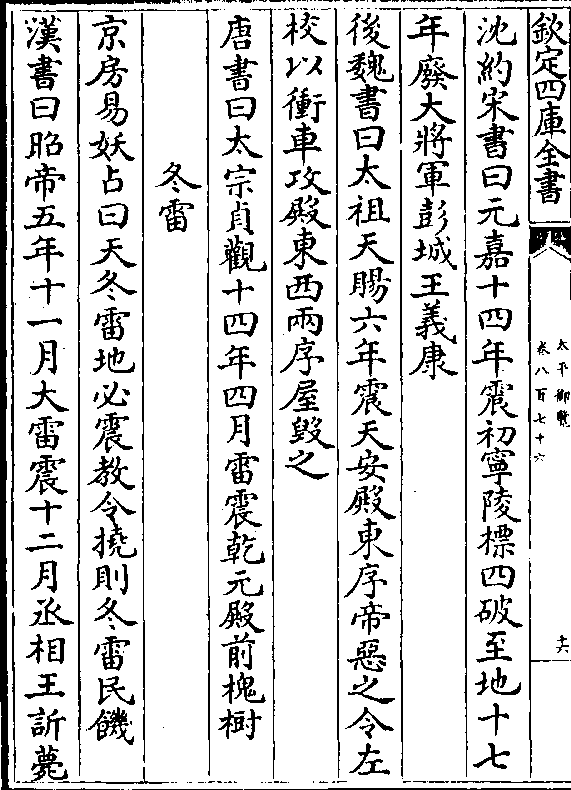 欽定四庫全書
太平御覽
卷八百七十六
十六
沈約宋書曰元嘉十四年震初寧陵標四破至地十七
年廢大將軍彭城王義康
後魏書曰太祖天賜六年震天安殿東序帝惡之令左
校以衝車攻殿東西兩序屋毀之
唐書曰太宗貞觀十四年四月雷震乾元殿前槐樹
冬雷
京房易妖占曰天冬雷地必震教令撓則冬雷民饑
漢書曰昭帝五年十一月大雷震十二月丞相王訢薨